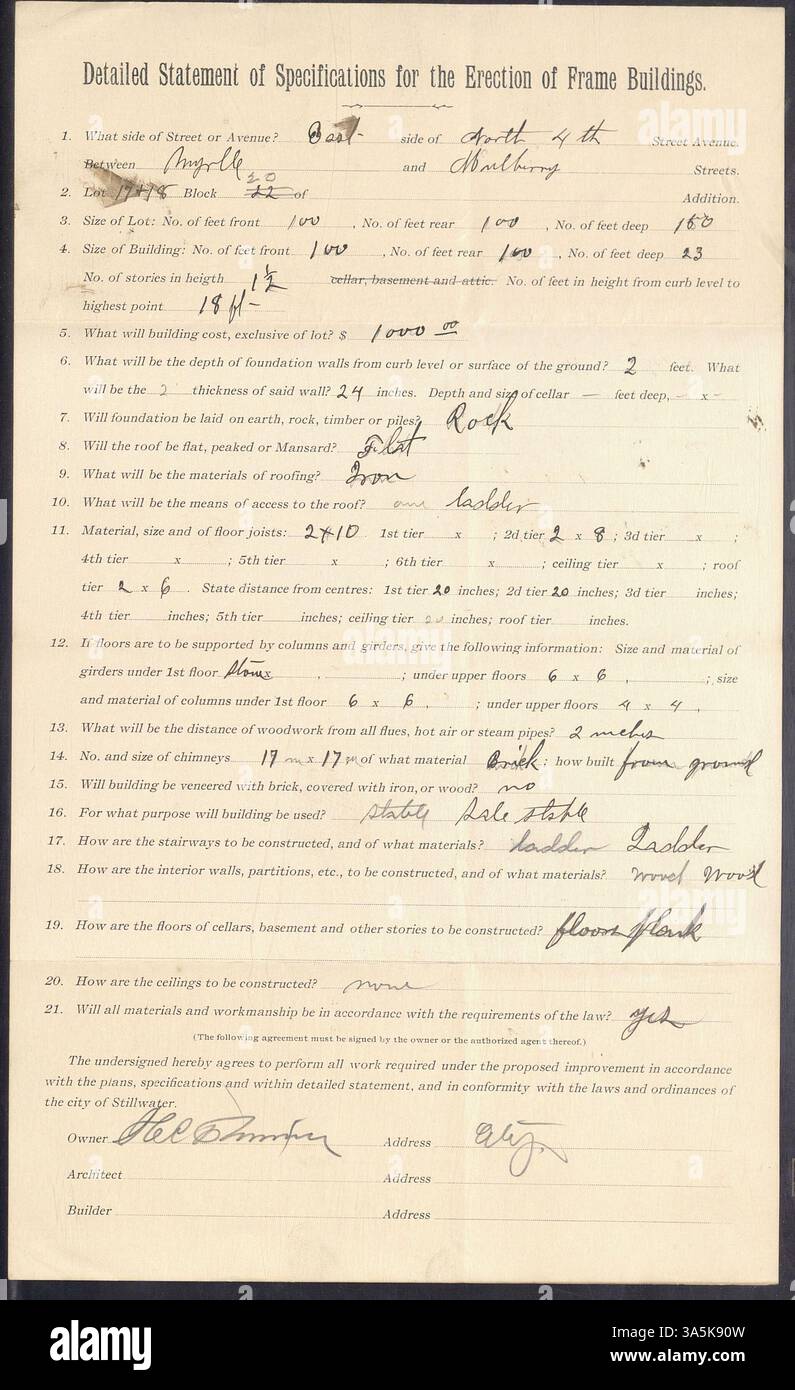 Detailed Statement of Specifications for the Erection of Frame Buildings.
1. What side of Street or Avenue? East side of North 4th Street Avenue.
Between Myrtle and Mulberry Streets.
20
2. Lot 17+18 Block 22 of Addition.
3. Size of Lot: No. of feet front 100, No. of feet rear 100, No. of feet deep 150
4. Size of Building: No. of feet front 100, No. of feet rear 100, No. of feet deep 23
No. of stories in heigth 1½ cellar, basement and attic. No. of feet in height from curb level to
highest point 18 ft-
5. What will building cost, exclusive of lot? $ 1000 00
6. What will be the depth of foundation walls from curb level or surface of the ground? 2 feet. What
will be the 2 thickness of said wall? 24 inches. Depth and size of cellar — feet deep, - x -
7. Will foundation be laid on earth, rock, timber or piles? Rock
8. Will the roof be flat, peaked or Mansard? Flat
9. What will be the materials of roofing? Iron
10. What will be the means of access to the roof? one ladder
11. Material, size and of floor joists: 2+10 1st tier x ; 2d tier 2 x 8; 3d tier x ;
4th tier x ; 5th tier x ; 6th tier x ; ceiling tier x ; roof
tier 2 x 6. State distance from centres: 1st tier 20 inches; 2d tier 20 inches; 3d tier inches;
4th tier inches; 5th tier inches; ceiling tier 20 inches; roof tier inches.
12. If floors are to be supported by columns and girders, give the following information: Size and material of
girders under 1st floor x , ; under upper floors 6 x 6 , ; size
and material of columns under 1st floor 6 x 6, ; under upper floors 4 x 4,
13. What will be the distance of woodwork from all flues, hot air or steam pipes? 2 inches
14. No. and size of chimneys 17 in x 17 in of what material Brick; how built from ground
15. Will building be veneered with brick, covered with iron, or wood? no
16. For what purpose will building be used? stable Sale stable
17. How are the stairways to be constructed, and of what materials? ladder Ladder
18. How are the interior walls, partitions, etc., to be constructed, and of what materials? wood wood
19. How are the floors of cellars, basement and other stories to be constructed? floors plank
20. How are the ceilings to be constructed? none
21. Will all materials and workmanship be in accordance with the requirements of the law? yes
(The following agreement must be signed by the owner or the authorized agent thereof.)
The undersigned hereby agrees to perform all work required under the proposed improvement in accordance
with the plans, specifications and within detailed statement, and in conformity with the laws and ordinances of
the city of Stillwater.
Owner Address City
Architect Address
Builder Address
alamy
Image ID: 3A5K90W
www.alamy.com